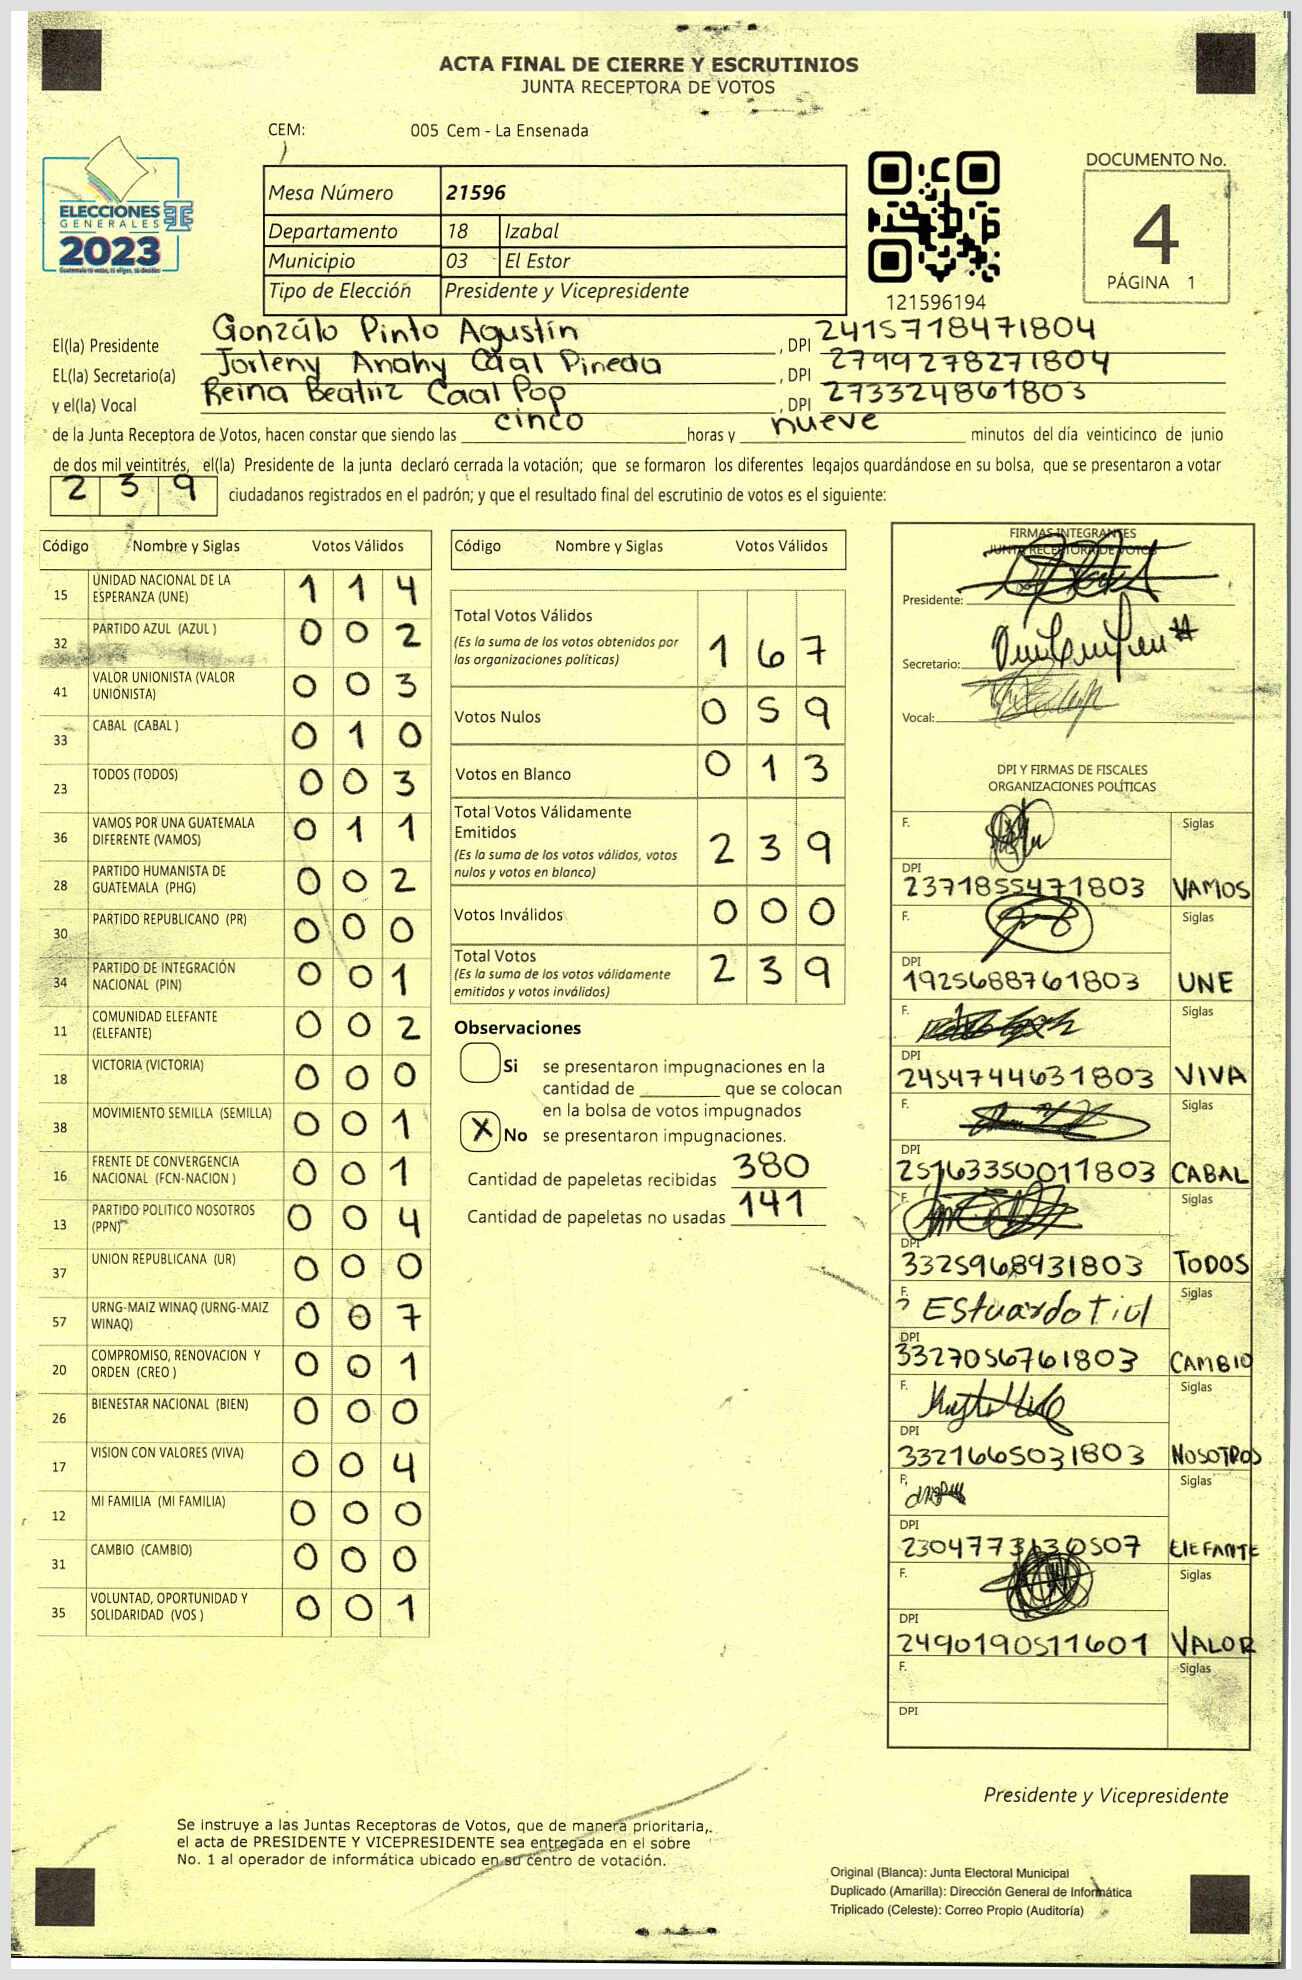 ACTA FINAL DE CIERRE Y ESCRUTINIOS
JUNTA RECEPTORA DE VOTOS
CEM: 005 Cem - La Ensenada
ELECCIONES
GENERALES
2023
Mesa Número 21596
Departamento 18 Izabal
Municipio 03 El Estor
Tipo de Elección Presidente y Vicepresidente
121596194
DOCUMENTO No.
4
PÁGINA 1
El(la) Presidente Gonzálo Pinto Agustín , DPI 2415718471804
EL(la) Secretario(a) Jorleny Anahy Caal Pineda , DPI 2799278271804
y el(la) Vocal Reina Beatriz Caal Pop , DPI 273324861803
de la Junta Receptora de Votos, hacen constar que siendo las cinco horas y nueve minutos del día veinticinco de junio
de dos mil veintitrés, el(la) Presidente de la junta declaró cerrada la votación; que se formaron los diferentes legajos guardándose en su bolsa, que se presentaron a votar
2 3 9 ciudadanos registrados en el padrón; y que el resultado final del escrutinio de votos es el siguiente:
Código Nombre y Siglas Votos Válidos
15 UNIDAD NACIONAL DE LA ESPERANZA (UNE) 1 1 4
32 PARTIDO AZUL (AZUL ) 0 0 2
41 VALOR UNIONISTA (VALOR UNIONISTA) 0 0 3
33 CABAL (CABAL ) 0 1 0
23 TODOS (TODOS) 0 0 3
36 VAMOS POR UNA GUATEMALA DIFERENTE (VAMOS) 0 1 1
28 PARTIDO HUMANISTA DE GUATEMALA (PHG) 0 0 2
30 PARTIDO REPUBLICANO (PR) 0 0 0
34 PARTIDO DE INTEGRACIÓN NACIONAL (PIN) 0 0 1
11 COMUNIDAD ELEFANTE (ELEFANTE) 0 0 2
18 VICTORIA (VICTORIA) 0 0 0
38 MOVIMIENTO SEMILLA (SEMILLA) 0 0 1
16 FRENTE DE CONVERGENCIA NACIONAL (FCN-NACION ) 0 0 1
13 PARTIDO POLITICO NOSOTROS (PPN) 0 0 4
37 UNION REPUBLICANA (UR) 0 0 0
57 URNG-MAIZ WINAQ (URNG-MAIZ WINAQ) 0 0 7
20 COMPROMISO, RENOVACION Y ORDEN (CREO ) 0 0 1
26 BIENESTAR NACIONAL (BIEN) 0 0 0
17 VISION CON VALORES (VIVA) 0 0 4
12 MI FAMILIA (MI FAMILIA) 0 0 0
31 CAMBIO (CAMBIO) 0 0 0
35 VOLUNTAD, OPORTUNIDAD Y SOLIDARIDAD (VOS ) 0 0 1
Código Nombre y Siglas Votos Válidos
Total Votos Válidos
(Es la suma de los votos obtenidos por
las organizaciones políticas) 1 6 7
Votos Nulos 0 5 9
Votos en Blanco 0 1 3
Total Votos Válidamente
Emitidos
(Es la suma de los votos válidos, votos
nulos y votos en blanco) 2 3 9
Votos Inválidos 0 0 0
Total Votos
(Es la suma de los votos válidamente
emitidos y votos inválidos) 2 3 9
Observaciones
Si se presentaron impugnaciones en la
cantidad de ________ que se colocan
en la bolsa de votos impugnados
X No se presentaron impugnaciones.
Cantidad de papeletas recibidas 380
Cantidad de papeletas no usadas 141
FIRMAS INTEGRANTES
JUNTA RECEPTORA DE VOTOS
Presidente:
Secretario:
Vocal:
DPI Y FIRMAS DE FISCALES
ORGANIZACIONES POLÍTICAS
F. Siglas
DPI
2371855471803 VAMOS
F. Siglas
DPI
1925688761803 UNE
F. Siglas
DPI
2454744631803 VIVA
F. Siglas
DPI
2516335001 1803 CABAL
F. Siglas
DPI
3325968931803 TODOS
F. Estuardo Tiul Siglas
DPI
3327056761803 CAMBIO
F. Siglas
DPI
3321665031803 NOSOTROS
F. Siglas
DPI
2304773130507 ElEFANTE
F. Siglas
DPI
2490190511601 VALOR
F. Siglas
DPI
Presidente y Vicepresidente
Se instruye a las Juntas Receptoras de Votos, que de manera prioritaria,
el acta de PRESIDENTE Y VICEPRESIDENTE sea entregada en el sobre
No. 1 al operador de informática ubicado en su centro de votación.
Original (Blanca): Junta Electoral Municipal
Duplicado (Amarilla): Dirección General de Informática
Triplicado (Celeste): Correo Propio (Auditoría)